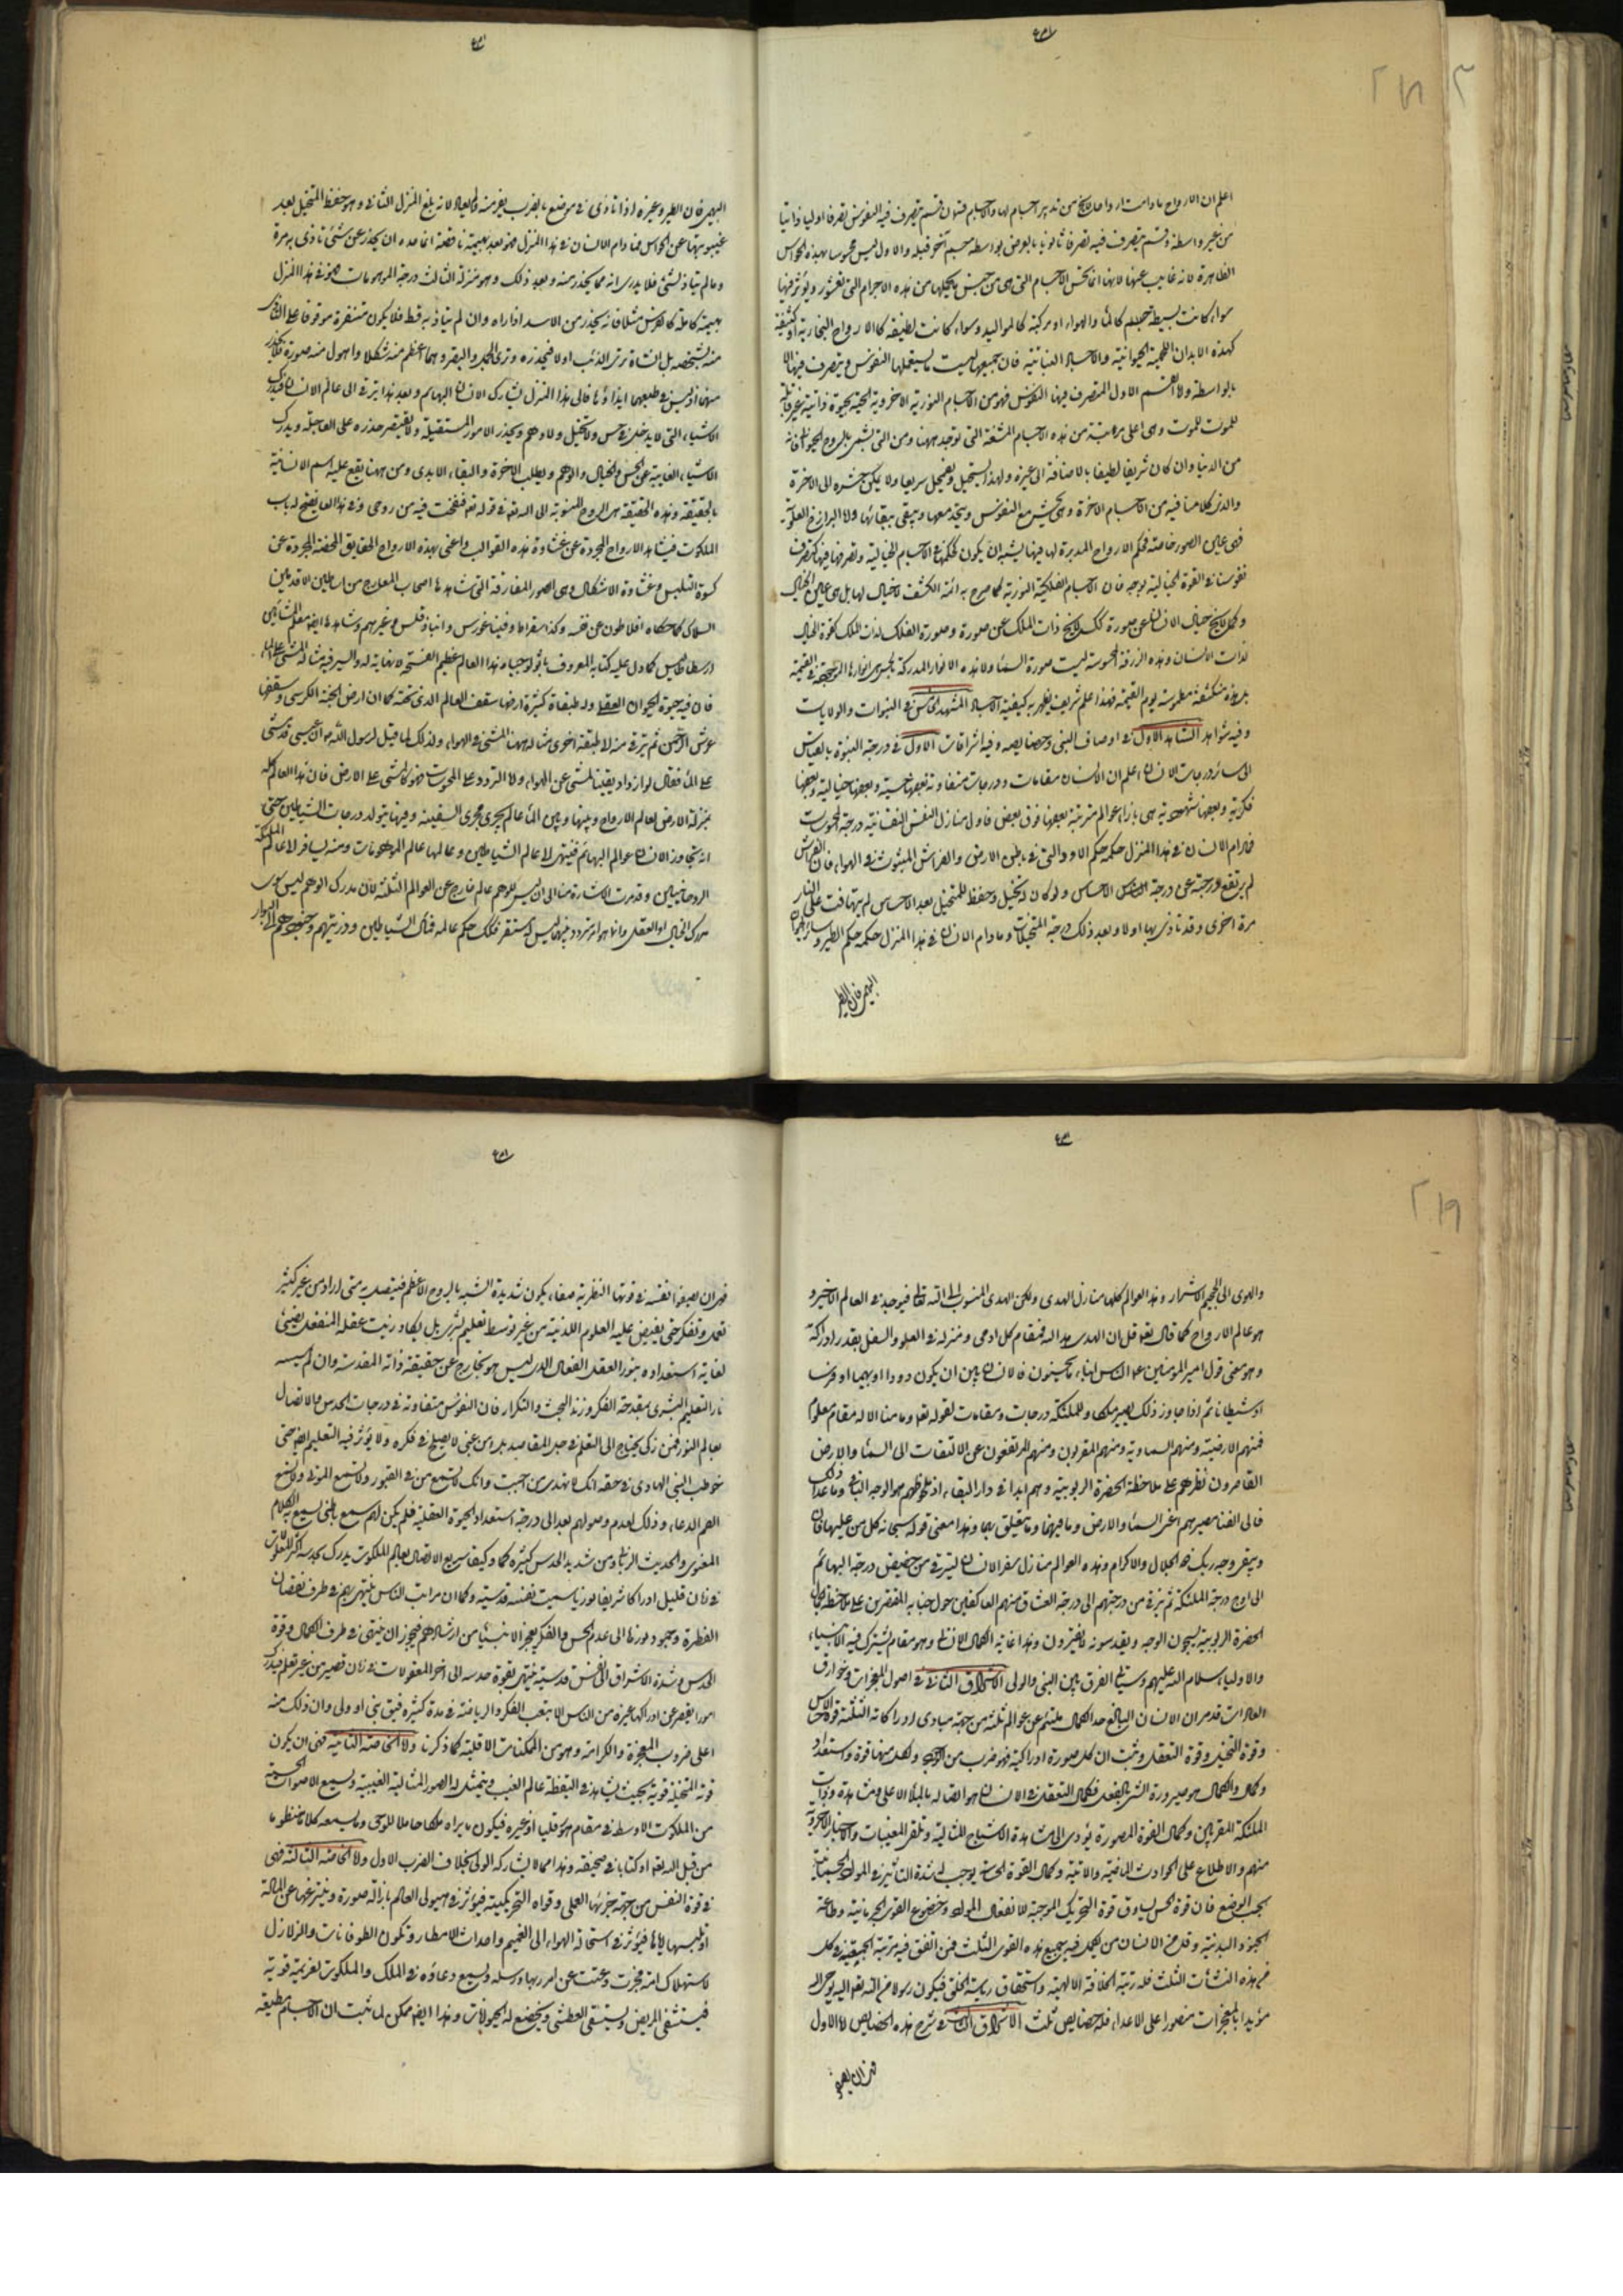 اعلم ان الارواح ما دامت ارواحا لا يخ من تدبير اجسام لها والاجسام قسمان قسم يتصرف فيه النفوس تصرفا اوليا ذاتيا
من غير واسطة وقسم يتصرف فيه تصرفا ثانويا بالعرض بواسطة جسم آخر قبله والاول ليس محسوسا بهذه الحواس
الظاهرة لانه غايب عنها لانها انما تحس الاجسام التي هي من جنس ما يحملها من هذه الاجرام التي كالقشور ويؤثر فيها
سواء كانت بسيطة كالماء والهواء او مركبة كالمواليد وسواء كانت لطيفة كالارواح البخارية او كثيفة
كهذه الابدان اللحمية الحيوانية والاجساد النباتية فان جميعها ليست ما يستعملها النفوس ويتصرف فيها الا
بالواسطة ولا القسم الاول المتصرف فيها النفوس فهو من الاجسام النورية الاخروية الحية بحيوة ذاتية غير قابلة
للموت وهي اعلى مرتبة من هذه الاجسام المشفة التي توجد ههنا ومن التي تسمى بالروح الحيواني فانه
من الدنيا وان كان شريفا لطيفا بالاضافة الى غيره ولهذا يستحيل ويضمحل سريعا ولا يمكن حشره الى الاخرة
والذي كلامنا فيه من اجسام الاخرة وهي تحشر مع النفوس وتتحد معها وتبقى ببقائها ولا البرازخ العلوية
فهي عين الصور خاصة فحكم الارواح المدبرة لها فيها يشبه ان يكون كحكمنا في الاجسام الخيالية وتصرفها فيها كتصرف
نفوسنا في القوة الخيالية بوجه فان الاجسام الفلكية النورية كما صرح به ائمة الكشف لا خيال لها بل هي عين الخيال
وكما لا يخ خيال الانسان عن صورة كك لا يخ ذات الملك عن صورة وصورة الفلك لذات الملك كقوة الخيال
لذات الانسان وهذه الزرقة المحسوسة ليست صورة السماء ولا هذه الانوار المدركة بالحس انوارها الموجبة في القيمة
بل هذه منكشفة مطموسة يوم القيمة فهذا علم شريف يظهر به كيفية الاجساد المشهد الخامس في النبوات والولايات
وفيه شواهد الشاهد الاول في اوصاف النبي وخصايصه وفيه اشراقات الاول في درجة النبوة بالقياس
الى سائر درجات الانسان اعلم ان الانسان مقامات ودرجات متفاوتة بعضها حسية وبعضها خيالية وبعضها
فكرية وبعضها شهودية وهي بازاء عوالم مترتبة بعضها فوق بعض فاول منازل النفس الانسانية درجة المحسوسات
فما دام الانسان في هذا المنزل حكمه حكم الدود التي في باطن الارض والفراش المبثوث في الهواء فان الفراش
لم يرتفع درجته عن درجة الاحساس ولو كان له تخيل وحفظ للمتخيل بعد الاحساس لم يتهافت على النار
مرة اخرى وقد تاذى بها اولا وبعد ذلك درجة المتخيلات وما دام الانسان في هذا المنزل حكمه حكم الطير وسائر البهائم
البهيمي فان الطير
البهيمي فان الطير وغيره اذا تاذى في موضع بالضرب يفر منه ولا يعاود لانه بلغ المنزل الثاني وهو حفظ المتخيل بعد
غيبوبتها عن الحواس فما دام الانسان في هذا المنزل فهو بعد بهيمة ناقصة انما حده ان يحذر عن شئ تاذى به مرة
وما لم يتاذ بشئ فلا يدري انه مما يحذر منه وبعد ذلك وهو منزلة الثالث درجة الموهومات فهو في هذا المنزل
بهيمة كاملة كالفرس مثلا فانه يحذر من الاسد اذا راه وان لم يتاذ به قط فلا يكون متنفره موقوفا على التاذي
منه لشخصه بل الشاة ترى الذئب اولا فتحذره وترى الجمل والبقر وهما اعظم منه شكلا واهول منه صورة فلا تحذر
منهما اذ ليس في طبعهما ايذاؤها فالى هذا المنزل يشارك الانسان البهائم وبعد هذا يترقى الى عالم الانسانية فيدرك
الاشياء التي لا يدخل في حس ولا تخيل ولا وهم ويحذر الامور المستقبلة ولا يقتصر حذره على العاجلة ويدرك
الاشياء الغايبة عن الحس والخيال والوهم ويطلب الاخرة والبقاء الابدي ومن ههنا يقع عليه اسم الانسانية
بالحقيقة وهذه الحقيقة هي الروح المنسوبة الى الله تعه في قوله تعه فنفخت فيه من روحي وفي هذا العالم يفتح له باب
الملكوت فيشاهد الارواح المجردة عن غشاوة هذه القوالب واعني بهذه الارواح الحقايق المحضة المجردة عن
كسوة التلبيس وغشاوة الاشكال وهي الصور المفارقة التي شاهدها اصحاب المعارج من اساطين الاقدمين
السلاك كما حكاه افلاطون عن نفسه وكذا سقراط وفيثاغورس وانباذقلس وغيرهم وشاهدها ايضا معلم المشائين
ارسطاطاليس كما دل عليه كتابه المعروف باثولوجيا وهذا العالم عظيم الفسحة لا نهاية له والسير فيه مثاله المشي على الماء
فان فيه حيوة الحيوان العقلي وله طبقات كثيرة ارضها سقف العالم الذي تحته كما ان ارض الجنة الكرسي وسقفها
عرش الرحمن ثم يترقى منه لا طبقة اخرى مثاله ههنا المشي في الهواء ولذلك لما قيل لرسول الله ص ان عيسى قد مشى
على الماء فقال لو ازداد يقينا لمشى على الهواء ولا التردد على المحسوسات فهو كالمشي على الارض فان هذا العالم كله
بمنزلة الارض لعالم الارواح وبينها وبين الماء عالم يجري مجرى السفينة وفيها يتولد درجات الشياطين حتى
ان تجاوز الانسان عوالم البهائم فينتهي لا عالم الشياطين وعالمها عالم الموهومات ومنه يسافر لا عالم الملئكة
الروحانيين وقد مرت الاشارة منا الى ان ليس للوهم عالم خارج عن العوالم الثلثة لان مدرك الوهم ليس سوى
مدرك الخيال او العقل وانما هو امر متردد فيهما ليس له مستقر فكذلك حكم عالمه فمآل الشياطين وذريتهم وجنودهم الى البوار
والهوى الى الجحيم والاشرار وهذا العوالم كلها منازل الهدى ولكن الهدى المنسوب الى الله تعالى فيوجد في العالم الاخير و
هو عالم الارواح كما قال تعالى قل ان الهدى هدى الله فمقام كل ادمي ومنزله في العلو والسفل بقدر ادراكه
وهو معنى قول امير المؤمنين ع الناس ابناء ما يحسنون فالانسان بين ان يكون دودا او بهيما او فرسا
او شيطانا ثم اذا جاوز ذلك يصير ملكا وللملئكة درجات ومقامات لقوله تعه وما منا الا له مقام معلوم
فمنهم الارضية ومنهم السماوية ومنهم المقربون ومنهم المرتفعون عن الالتفات الى السماء والارض
القاصرون نظرهم على ملاحظة الحضرة الربوبية وهم ابدا في دار البقاء اذ ملحوظهم هو الوجه الباقي وما عدا ذلك
فالى الفناء مصيرهم اعني السماء والارض وما فيهما وما يتعلق بهما وهذا معنى قوله سبحانه كل من عليها فان
ويبقى وجه ربك ذو الجلال والاكرام وهذه العوالم منازل سفر الانسان ليترقى من حضيض درجة البهائم
الى اوج درجة الملئكة ثم يترقى من درجتهم الى درجة العشاق منهم العاكفين حول جنابه المقتصرين على ملاحظة جمال
الحضرة الربوبية يسبحون الوجه ويقدسونه لا يفترون وهذا غاية الكمال الانساني وهو مقام يشترك فيه الانبياء
والاولياء سلام الله عليهم وسياتي الفرق بين النبي والولي الاشراق الثاني في اصول المعجزات وخوارق
العادات قد مر ان الانسان البالغ حد الكمال ملتئم عن عوالم ثلثة من جهة مبادي ادراكاته الثلثة قوة الاحساس
وقوة التخيل وقوة التعقل وثبت ان كل صورة ادراكية فهو ضرب من الوجود ولكل منها قوة واستعداد
وكمال والكمال هو صيرورة الشئ بالفعل فكمال التعقل في الانسان هو اتصاله بالملاء الاعلى ومشاهدة ذوات
الملئكة المقربين وكمال القوة المصورة يؤدى الى مشاهدة الاشباح المثالية وتلقي المغيبات والاخبار الجزوية
منهم والاطلاع على الحوادث الماضية والاتية وكمال القوة الحساسة يوجب له شدة التاثير في المواد الجسمانية
بحسب الوضع فان قوة الحس يساوق قوة التحريك الموجبة لانفعال المواد وخضوع القوى الجرمانية وطاعة
الجنود البدنية وقل من الانسان من يكمل فيه جميع هذه القوى الثلث فمن اتفق فيه مرتبة الجمعية في كمال
هذه النشآت الثلث فله رتبة الخلافة الالهية واستحقاق رياسة الخلق فيكون رسولا من الله تعه اليه يوحى اليه
مؤيدا بالمعجزات منصورا على الاعداء فله خصايص ثلث الاشراق الثالث في شرح هذه الخصايص لا الاول
فهي ان يصفو
فهي ان يصفو نفسه في قوتها النظرية صفاء يكون شديدة الشبه بالروح الاعظم فيتصل به متى اراد من غير كثير
تعمل وتفكر حتى يفيض عليه العلوم اللدنية من غير توسط تعليم بشري بل يكاد زيت عقله المنفعل يضيئ
لغاية استعداده بنور العقل الفعال الذي ليس هو بخارج عن حقيقة ذاته المقدسة وان لم تمسسه
نار التعليم البشري بمقدحة الفكر وزند البحث والتكرار فان النفوس متفاوتة في درجات الحدس والاتصال
بعالم النور فمن زكي يحتاج الى التعلم في جل المقاصد بل كلها ومن غبي لا يفلح في فكره ولا يؤثر فيه التعليم ايضا حتى
خوطب النبي الهادي في حقه انك لا تهدي من احببت وانك لا تسمع من في القبور ولا تسمع الموتى ولا تسمع
الصم الدعاء وذلك لعدم وصولهم بعد الى درجة استعداد الحيوة العقلية فلم يكن لهم سمع باطني يسمع به الكلام
المعنوي والحديث الرباني ومن شديد الحدس كثيره كما وكيفا سريع الاتصال بعالم الملكوت يدرك بحدسه اكثر المعلومات
في زمان قليل ادراكا شريفا نوريا سميت نفسه قدسية وكما ان مراتب الناس ينتهي بهم في طرف نقصان
الفطرة وخمود نورها الى عدم الحس والفكر يعجز الانبياء من ارشادهم فيجوز ان ينتهي في طرف الكمال وقوة
الحدس وشدة الاشراق الى نفس قدسية ينتهي بقوة حدسه الى اخر المعقولات في زمان قصير من غير تعلم فيدرك
امورا يقصر عن ادراكها غيره من الناس الا بتعب الفكر والرياضة في مدة كثيرة فيق نبي او ولي وان ذلك منه
اعلى ضروب المعجزة والكرامة وهو من الممكنات الاقلية كما ذكرنا ولا الخاصة الثانية فهي ان يكون
قوته المتخيلة قوية بحيث يشاهد في اليقظة عالم الغيب ويتمثل له الصور المثالية الغيبية ويسمع الاصوات الحسية
من الملكوت الاوسط في مقام هورقليا او غيره فيكون ما يراه ملكا حاملا للوحي وما يسمعه كلاما منظوما
من قبل الله تعه او كتابا في صحيفة وهذا مما لا يشاركه الولي بخلاف الضرب الاول ولا الخاصة الثالثة فهي
في قوة النفس من جهة جزئها العملي وقواه التحريكية فيؤثر في هيولى العالم بازالة صورة ونزعها عن المادة
او تلبيسها اياها فيؤثر في استحالة الهواء الى الغيم واحداث الامطار وتكون الطوفانات والزلازل
لاستهلاك امة فجرت وعتت عن امر ربها ورسله ويسمع دعاؤه في الملك والملكوت لعزيمة قوية
فيستشفى المريض ويستسقى العطشى ويخضع له الحيوانات وهذا ايضا ممكن لما ثبت ان الاجسام مطيعة